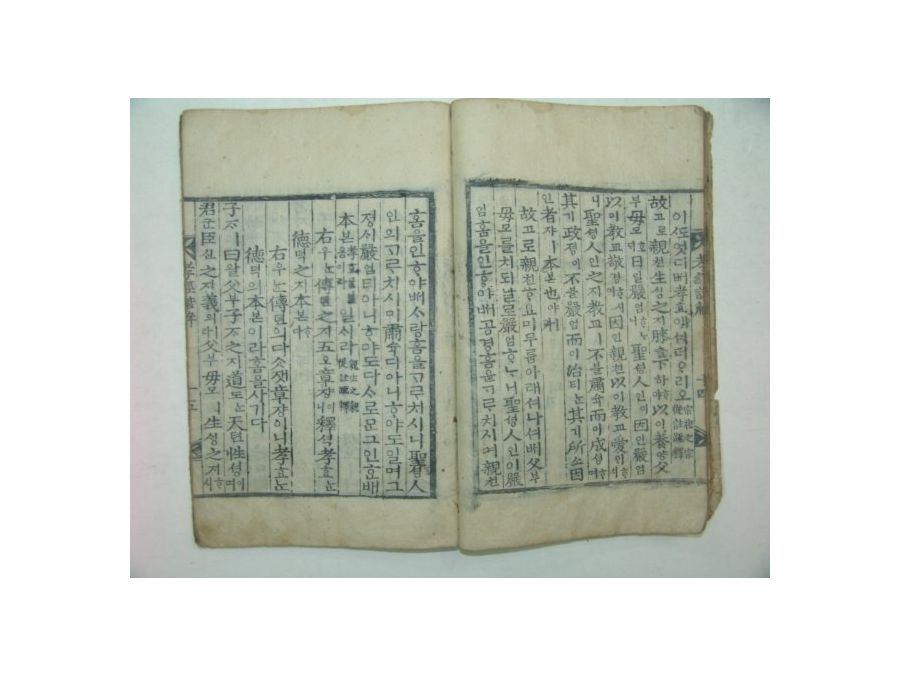 故고로親친生ᄉᆡᆼ之지膝슬下하ᄒᆞ야以이養양父
부母모日일嚴엄ᄒᆞᄂᆞ니聖셩人인이因인嚴엄
以이敎교敬경ᄒᆞ시며因인親친以이敎교愛ᄋᆡᄒᆞ시
니聖셩人인之지敎교ㅣ不불肅슉而이成셩ᄒᆞ며
其기政졍이不불嚴엄而이治티ᄂᆞᆫ其기所소因
인者쟈ㅣ本본也야
故고로親친호미무릅아래셔나셔ᄡᅥ父부
母모를치되날로嚴엄ᄒᆞᄂᆞ니聖셩人인이嚴
엄홈을인ᄒᆞ야ᄡᅥ공경홈을ᄀᆞᄅᆞ치시며親친
孝經諺解
十四
홈을인ᄒᆞ야ᄡᅥᄉᆞ랑홈을ᄀᆞᄅᆞ치시니聖셩人
인의ᄀᆞᄅᆞ치시미肅슉디아니ᄒᆞ야도일며그
졍ᄉᆡ嚴엄티아니ᄒᆞ야도다ᄉᆞ로문그인ᄒᆞᆫ배
本본일ᄉᆡ라
右우ᄂᆞᆫ傳뎐之지五오章쟝이니釋셕孝효ᄂᆞᆫ
德덕之지本본ᄒᆞ다
右우ᄂᆞᆫ傳뎐의다ᄉᆞᆺ잿章쟝이니孝효ᄂᆞᆫ
德덕의本본이라홈을사기다
子ᄌᆞㅣ曰왈父부子ᄌᆞ之지道도ᄂᆞᆫ天텬性셩이며
君군臣신之지義의라父부母모ㅣ生ᄉᆡᆼ之지ᄒᆞ시
孝經諺解
十五